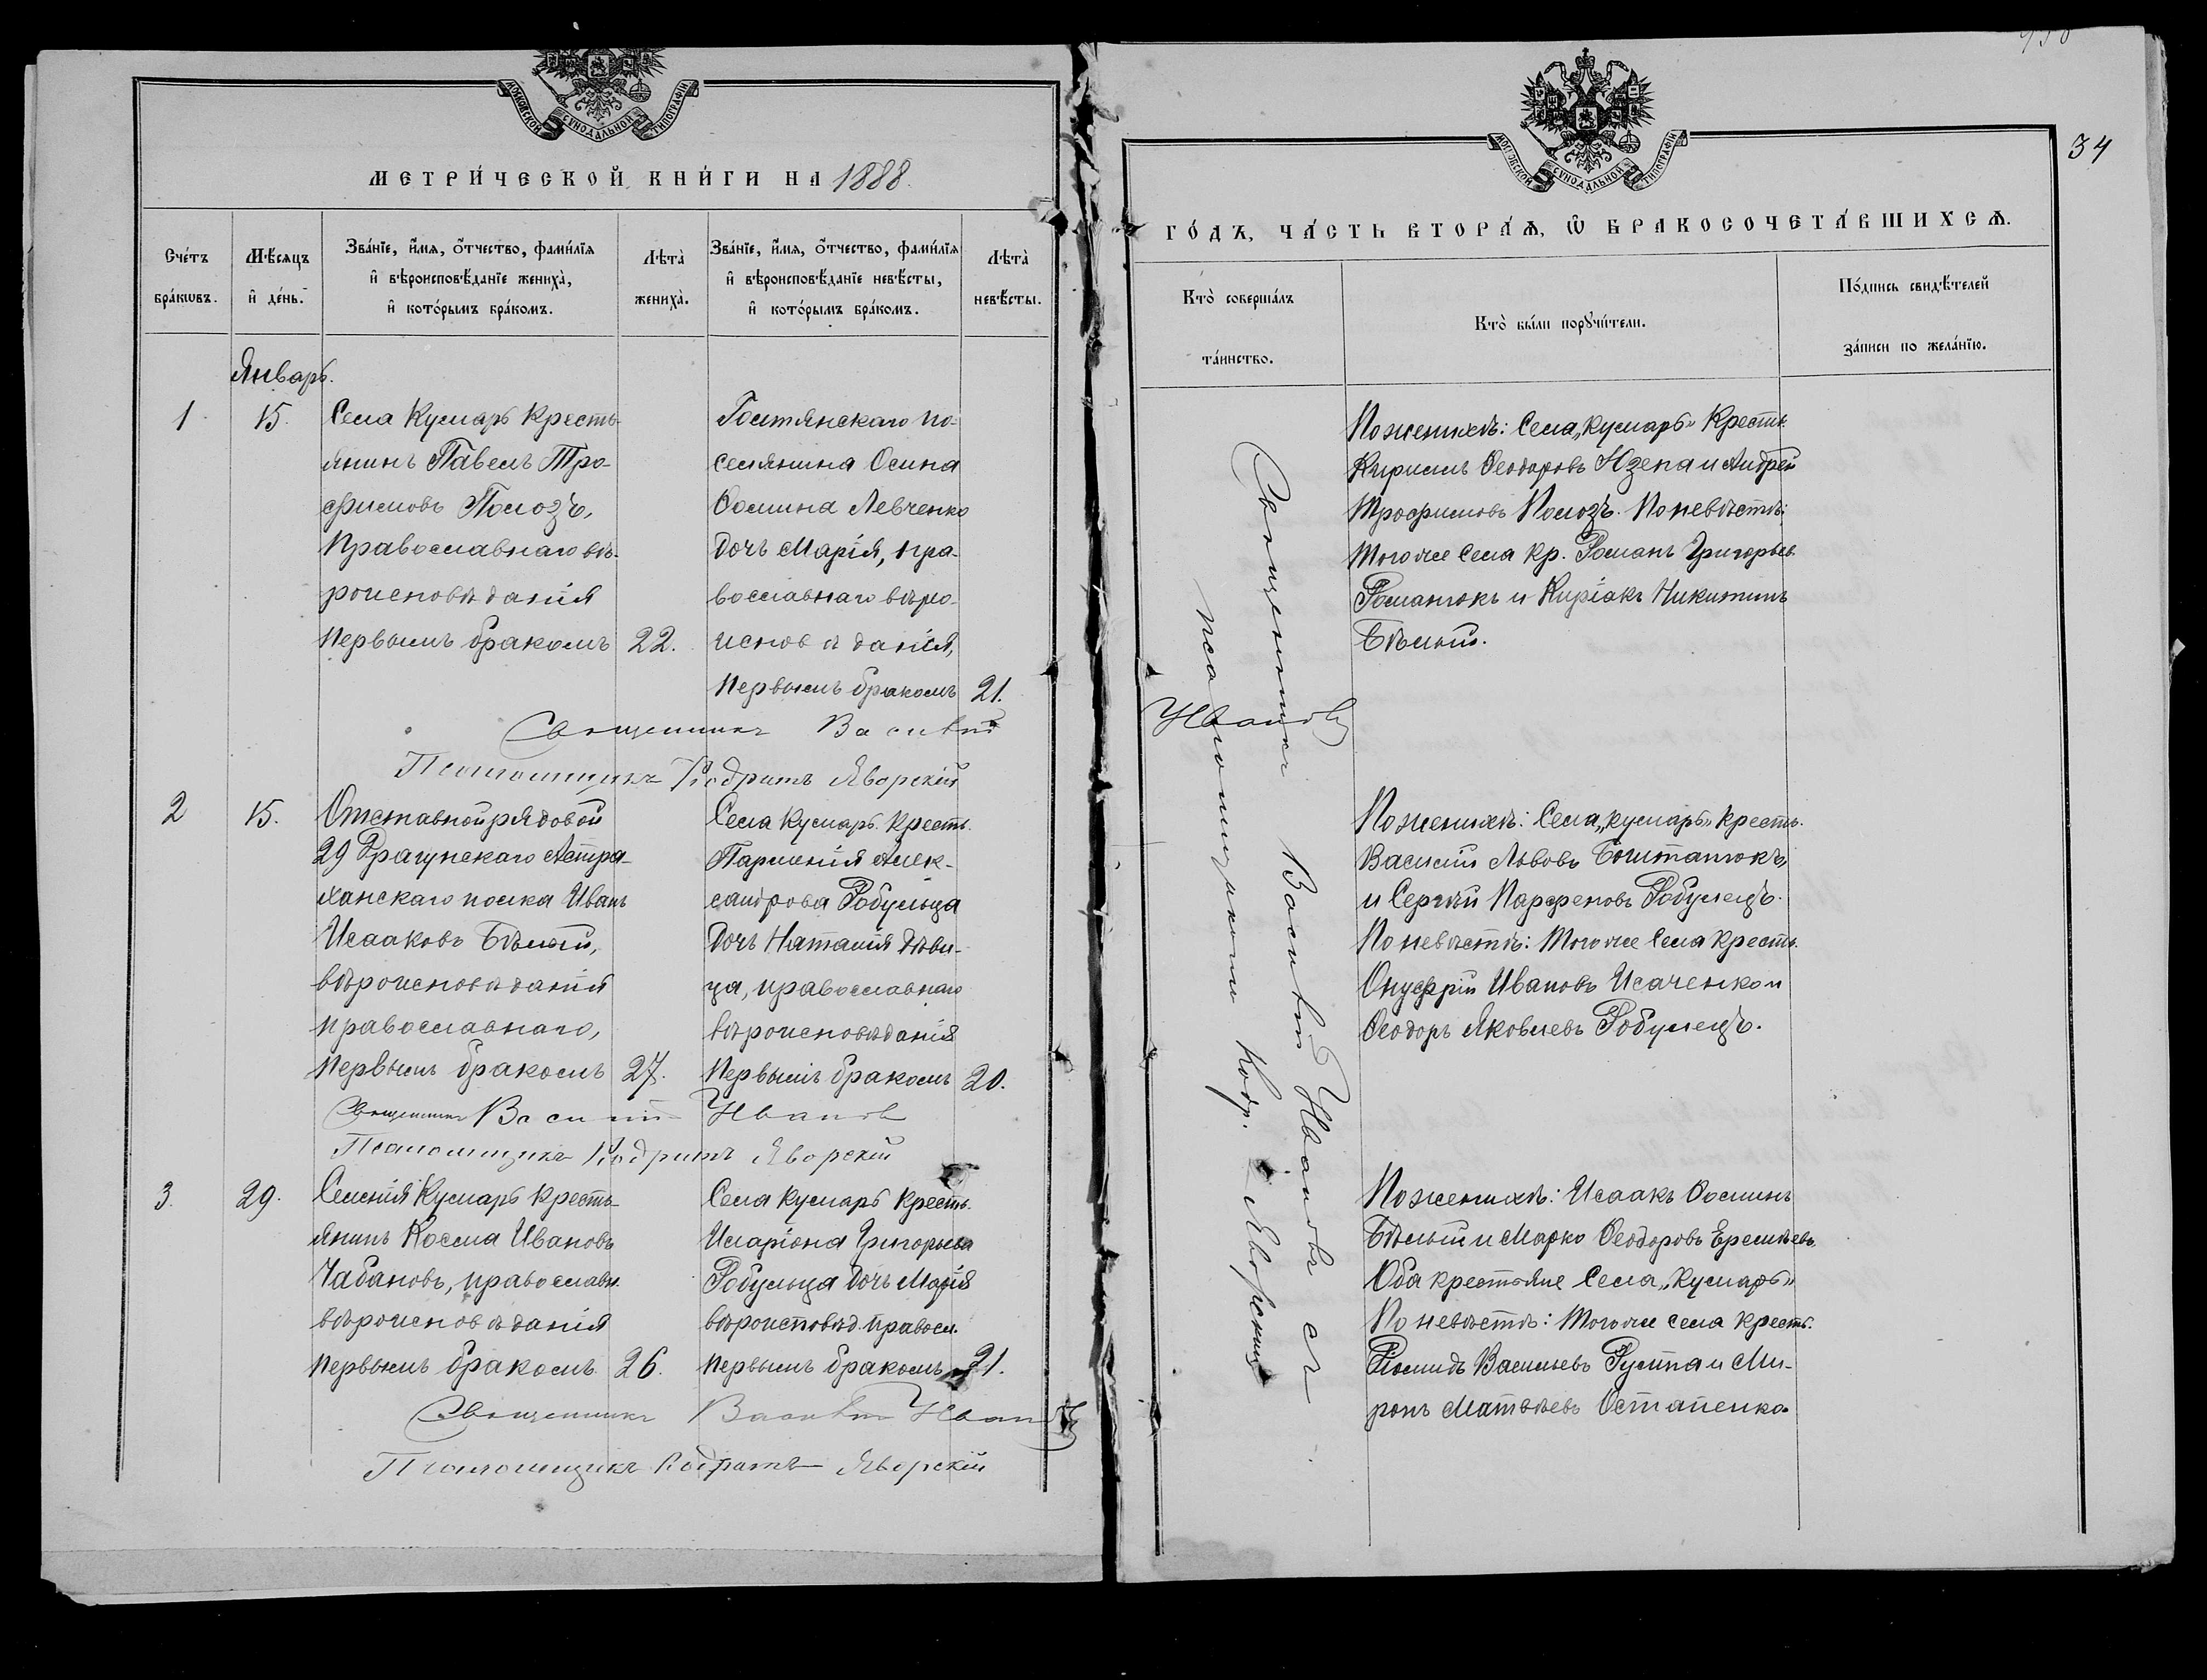 МОСКОВСКОЙ СѴНОДАЛЬНОЙ ТИПОГРАФІИ
МЕТРИ́ЧЕСКОЙ КНИ́ГИ НА 1888.
Сче́тъ бра́кѡвъ.
Мѣ́сяцъ и҆ де́нь.
Зва́нїе, и҆́мя, ѻ҆́тчество, фами́лїя
и҆ вѣроисповѣ́данїе жениха̀,
и҆ кото́рымъ бра́комъ.
Лѣта̀ жениха̀.
Зва́нїе, и҆́мя, ѻ҆́тчество, фами́лїя
и҆ вѣроисповѣ́данїе невѣ́сты,
и҆ кото́рымъ бра́комъ.
Лѣта̀ невѣ́сты.
Январь.
1. 15.
Села Кумаръ кресть-
янинъ Павелъ Тро-
фимовъ Помозъ,
Православнаго вѣ-
роисповѣданія
первымъ бракомъ 22.
посемянина Осипа
Ѳомина Левченко
дочь Марія, пра-
вославнаго вѣро-
исповѣданія,
первымъ бракомъ 21.
Священникъ Василій
Псаломщикъ Кодратъ Яворскій
2 15.
Отставной рядовой
29 Драгунскаго Астра-
ханскаго полка Иванъ
Исааковъ Бѣлый,
вѣроисповѣданія
православнаго,
первымъ бракомъ 27.
Села Кумаръ крест.
Парменія Алек-
сандрова Рабульца
дочь Наталія дѣви-
ца, православнаго
вѣроисповѣданія
Первымъ бракомъ 20.
Священникъ Василій Иванов
Псаломщикъ Кодратъ Яворскій
3. 29.
Селенія Кумаръ кресть-
янинъ Косма Ивановъ
Чабановъ, православн.
вѣроисповѣданія
первымъ бракомъ 26.
Села Кумаръ крест.
Иларіона Григорьева
Рабульца дочь Марія
вѣроисповѣд. правосл.
первымъ бракомъ 21.
Священникъ Василій Иванов
Псаломщикъ Кодратъ Яворскій
34
МОСКОВСКОЙ СѴНОДАЛЬНОЙ ТИПОГРАФІИ
ГО́ДЪ, ЧА́СТЬ ВТОРА́Ѧ, Ѡ҆ БРАКОСОЧЕТА́ВШИХСѦ.
Кто̀ соверша́лъ та́инство.
Кто̀ бы́ли порꙋчи́тели.
По́дпись свидѣ́телей
за́писи по жела́нїю.
Священникъ Василій Ивановъ съ
псаломщикомъ Кодр. Яворскимъ
Ивановъ
По женихѣ: Села „Кумаръ“ Крест.
Кириллъ Ѳеодоровъ и Андрей
Трофимовъ Помозъ. По невѣстѣ:
Того же села кр. Романъ Григорьев.
Романюкъ и Киріакъ Никитинъ
Бѣлый.
По женихѣ: Села „Кумаръ“ крест.
Василій Львовъ
и Сергѣй Парфеновъ Рабулецъ.
По невѣстѣ: Того же села крест.
Онуфрій Ивановъ Исаченко и
Ѳеодоръ Яковлевъ Рабулецъ.
По женихѣ: Исаакъ Ѳоминъ
Бѣлый и Марко Ѳеодоровъ Еремѣевъ.
Оба крестьяне села „Кумаръ“
По невѣстѣ: Того же села крест.
Васильевъ и Ми-
ронъ Матѳѣевъ Остапенко.